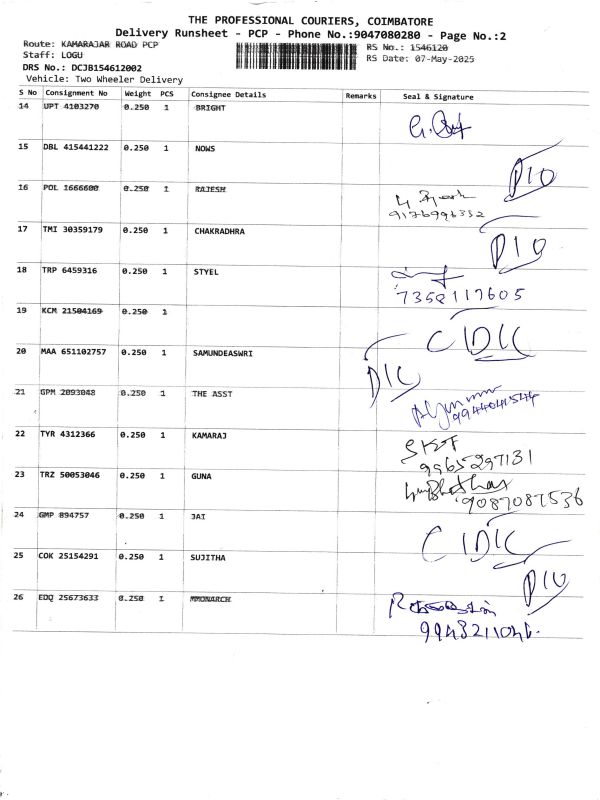 THE PROFESSIONAL COURIERS, COIMBATORE
Delivery Runsheet - PCP - Phone No.:9047080280 - Page No.:2
Route: KAMARAJAR ROAD PCP
RS No.: 1546120
Staff: LOGU
RS Date: 07-May-2025
DRS No.: DCJB154612002
Vehicle: Two Wheeler Delivery
S No Consignment No Weight PCS Consignee Details Remarks Seal & Signature
14 UPT 4103270 0.250 1 BRIGHT
15 DBL 415441222 0.250 1 NOWS
16 POL 1666600 0.250 1 RAJESH
9176996332
17 TMI 30359179 0.250 1 CHAKRADHRA
18 TRP 6459316 0.250 1 STYEL
7358117605
19 KCM 21504169 0.250 1
20 MAA 651102757 0.250 1 SAMUNDEASWRI
21 GPM 2093048 0.250 1 THE ASST
22 TYR 4312366 0.250 1 KAMARAJ
9965297131
23 TRZ 50053046 0.250 1 GUNA
9087087536
24 GMP 894757 0.250 1 JAI
25 COK 25154291 0.250 1 SUJITHA
26 EDQ 25673633 0.250 1 MMONARCH